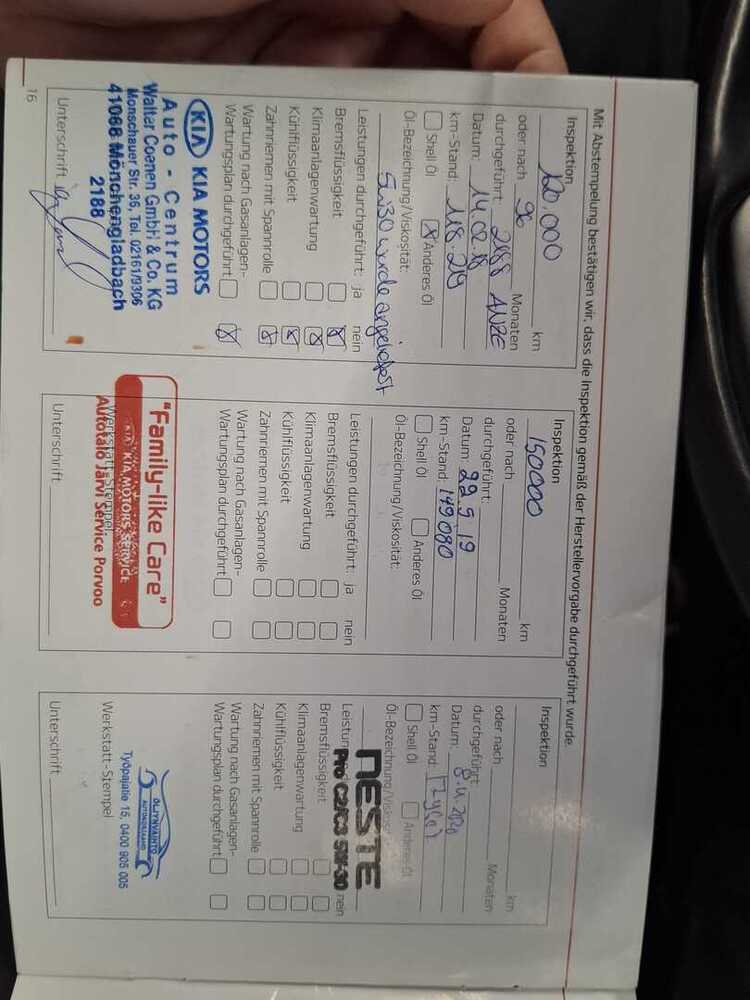 Mit Abstempelung bestätigen wir, dass die Inspektion gemäß der Herstellervorgabe durchgeführt wurde.
Inspektion
120.000 km
oder nach 96 Monaten
durchgeführt: 2188 ANZE
Datum: 14.02.18
km-Stand: 118.219
Shell Öl Anderes Öl
Öl-Bezeichnung/Viskosität:
5W30 wurde angeliefert
Leistungen durchgeführt: ja nein
Bremsflüssigkeit
Klimaanlagenwartung
Kühlflüssigkeit
Zahnriemen mit Spannrolle
Wartung nach Gasanlagen-
Wartungsplan durchgeführt
KIA KIA MOTORS
Auto - Centrum
Walter Coenen GmbH & Co. KG
Monschauer Str. 36, Tel. 02161/9306
41068 Mönchengladbach
2188
Unterschrift
16
Inspektion
150000 km
oder nach Monaten
durchgeführt:
Datum: 22 5 19
km-Stand: 149080
Shell Öl Anderes Öl
Öl-Bezeichnung/Viskosität:
Leistungen durchgeführt: ja nein
Bremsflüssigkeit
Klimaanlagenwartung
Kühlflüssigkeit
Zahnriemen mit Spannrolle
Wartung nach Gasanlagen-
Wartungsplan durchgeführt
"Family-like Care"
KIA KIA MOTORS SERVICE
Werkstatt-Stempel
Autotalo Järvi Service Porvoo
Unterschrift
Inspektion
km
oder nach Monaten
durchgeführt:
Datum: 8.4.2020
km-Stand:
Shell Öl Anderes Öl
Öl-Bezeichnung/Viskosität
NESTE
Pro C2/C3 5W-30
nein
Bremsflüssigkeit
Klimaanlagenwartung
Kühlflüssigkeit
Zahnriemen mit Spannrolle
Wartung nach Gasanlagen-
Wartungsplan durchgeführt
ÖLJYNVAIHTO
Työpajatie 15, 0400 905 005
Werkstatt-Stempel
Unterschrift